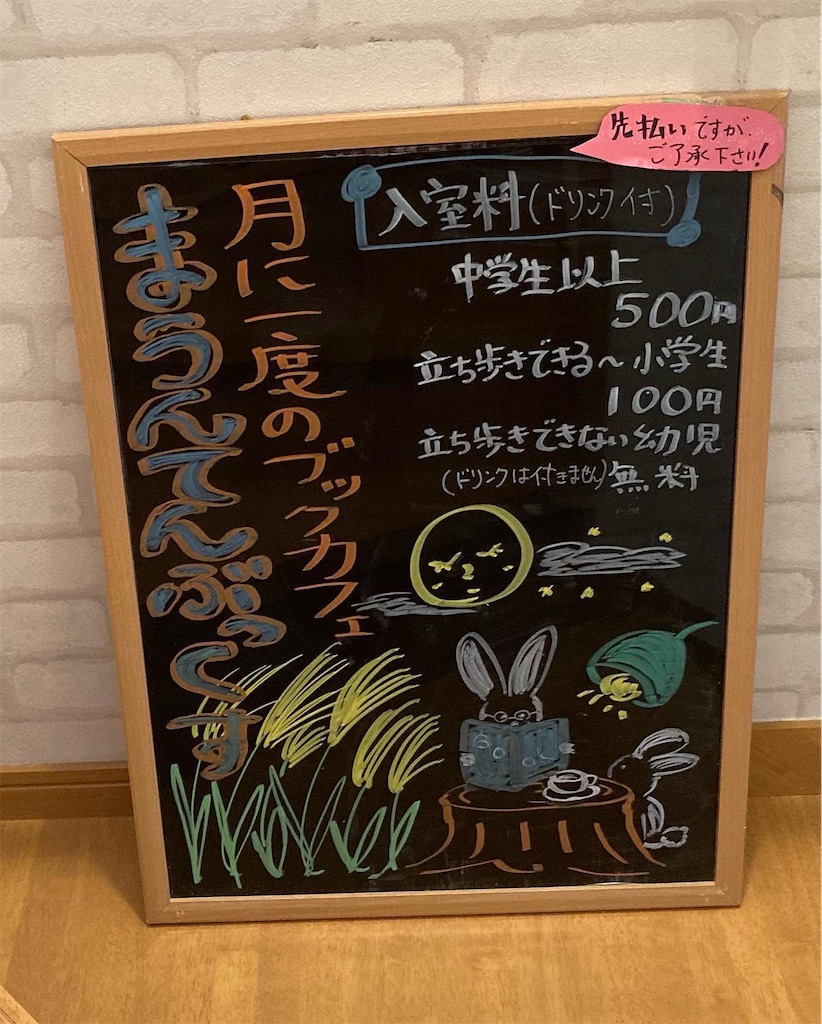 先払いですが、
ご了承下さい!
入室料(ドリンク付)
中学生以上
500円
立ち歩きできる〜小学生
100円
立ち歩きできない幼児
(ドリンクは付きません)無料
月に一度のブックカフェ
まうんてんぶっくす
BOOK